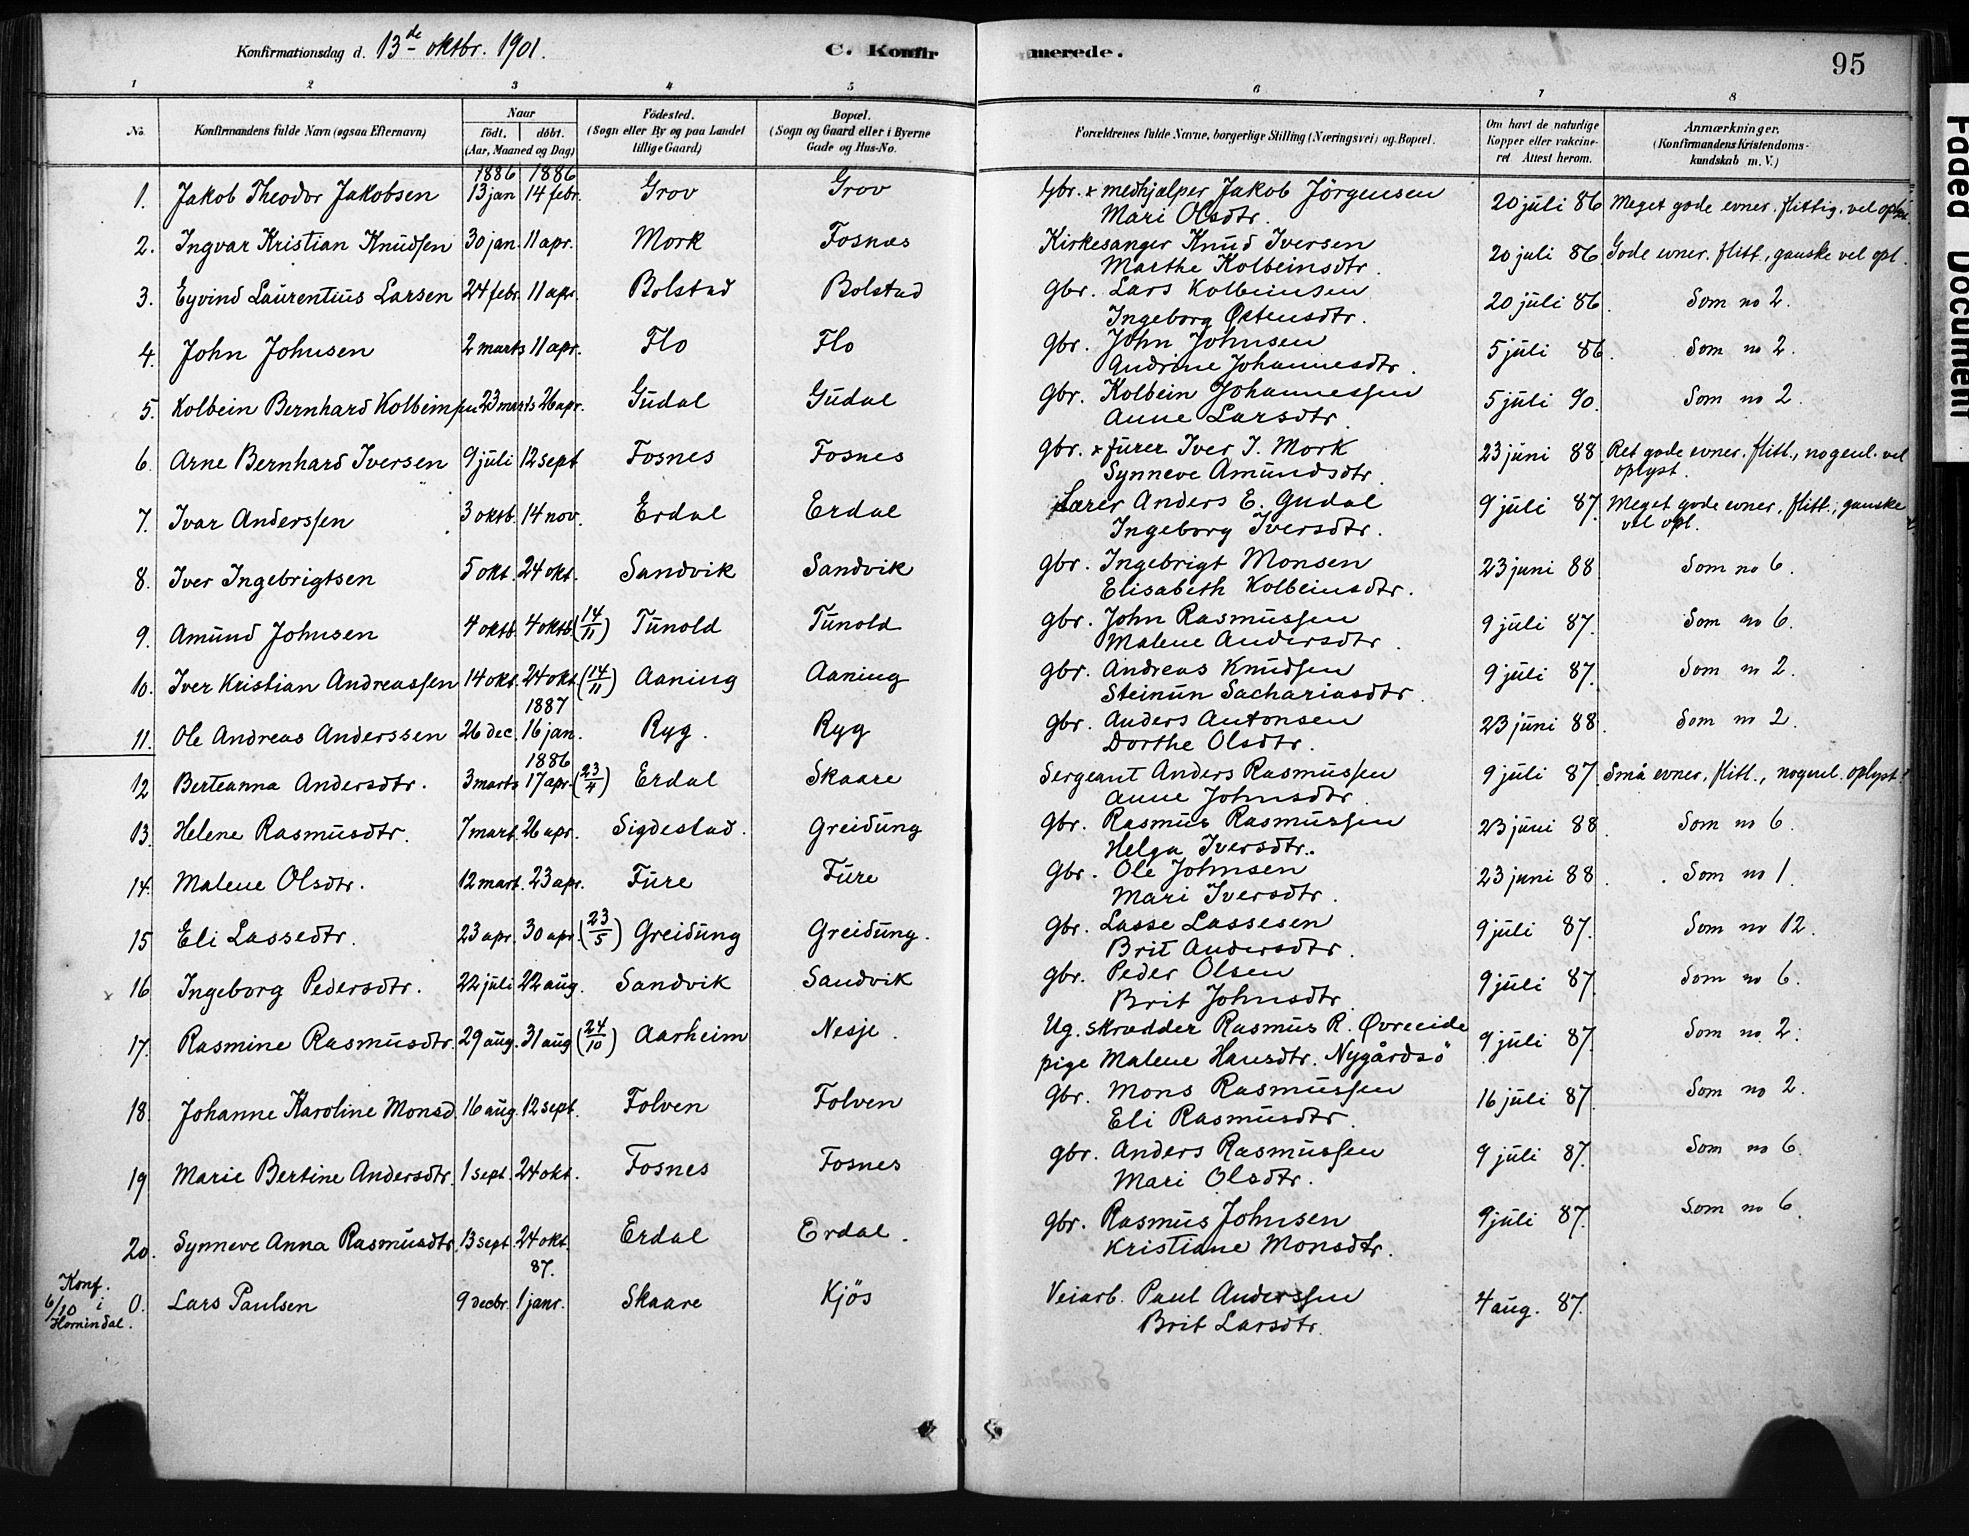 Konfirmationsdag d. 13de oktbr. 1901.
C. Konfirmerede.
95
1 2 3 4 5 6 7 8
No.
Konfirmandens fulde Navn (ogsaa Efternavn)
Naar
født. døbt.
(Aar, Maaned og Dag)
Fødested.
(Sogn eller By og paa Landet
tillige Gaard)
Bopæl.
(Sogn og Gaard eller i Byerne
Gade og Hus-No.
Forældrenes fulde Navne, borgerlige Stilling (Næringsvei) og Bopæl.
Om havt de naturlige
Kopper eller vakcine-
ret. Attest herom.
Anmærkninger.
(Konfirmandens Kristendoms-
kundskab m. V.)
1886 1886
1. Jakob Theodor Jakobsen 13 jan 14 febr. Grov Grov Gbr. & medhjælper Jakob Jörgensen 20 juli 86 Meget gode evner. flittig. vel oplyst
Mari Olsdtr.
2. Ingvar Kristian Knudsen 30 jan. 11 apr. Mork Fosnæs Kirkesanger Knud Iversen 20 juli 86 Gode evner. flitt., ganske vel opl.
Marthe Kolbeinsdtr.
3. Eyvind Laurentius Larsen 24 febr. 11 apr. Bolstad Bolstad Gbr. Lars Kolbeinsen 20 juli 86. Som no 2.
Ingeborg Østensdtr.
4. John Johnsen 2 marts 11 apr. Flo Flo Gbr. John Johnsen 5 juli 86. Som no 2.
Andrine Johannesdtr.
5. Kolbein Bernhard Kolbeinsen 23 marts 26 apr. Gudal Gudal Gbr. Kolbein Johannessen 5 juli 90. Som no 2.
Anne Larsdtr.
6. Arne Bernhard Iversen 9 juli 12 sept Fosnes Fosnes Gbr. & furer Iver I. Mork 23 juni 88. Ret gode evner. flitt., nogenl. vel
oplyst.
Synneve Amundsdtr.
7. Ivar Anderssen 3 oktb. 14 nov. Erdal Erdal Lærer Anders E. Gudal 9 juli 87. Meget gode evner, flitt., ganske
vel opl.
Ingeborg Iversdtr.
8. Iver Ingebrigtsen 5 okt. 24 okt. Sandvik Sandvik gbr. Ingebrigt Monsen 23 juni 88 Som no 6.
Elisabeth Kolbeinsdtr.
9. Amund Johnsen 4 oktb. 4 oktb. (14/11) Tunold Tunold gbr. John Rasmussen 9 juli 87. Som no 6.
Malene Andersdtr.
10. Iver Kristian Andreassen 14 okt. 24 okt. (14/11) Aaning Aaning gbr. Andreas Knudsen 9 juli 87. Som no 2.
Steinun Sachariasdtr.
1887
11. Ole Andreas Anderssen 26 dec. 16 jan. Ryg. Ryg gbr. Anders Antonsen 23 juni 88. Som no 2.
Dorthe Olsdtr.
1886
12 Berteanna Andersdtr. 3 marts 17 apr. (23/4) Erdal Skaare Sergeant Anders Rasmussen 9 juli 87. Små evner, flitt., nogenl. oplyst.
Anne Johnsdtr.
13. Helene Rasmusdtr. 7 mart. 26 apr. Sigdestad. Greidung Gbr. Rasmus Rasmussen 23 juni 88. Som no 6.
Helga Iversdtr.
14. Malene Olsdtr. 12 mart. 23 apr. Fure Fure Gbr. Ole Johnsen 23 juni 88. Som no 1.
Mari Iversdtr.
15 Eli Lassedtr. 23 apr. 30 apr. (23/5) Greidung Greidung. Gbr. Lasse Lassesen 9 juli 87. Som no 12.
Brit Andersdtr.
16 Ingeborg Pedersdtr. 22 juli 22 aug. Sandvik Sandvik gbr. Peder Olsen 9 juli 87. Som no 6.
Brit Johnsdtr.
17. Rasmine Rasmusdtr. 29 aug. 31 aug (24/10) Aarheim Nesje. Ug. skrædder Rasmus R. Øvreeide 9 juli 87. Som no 2.
pige Malene Hansdtr. Nygårdsö
18. Johanne Karoline Monsd. 16 aug. 12 sept. Folven Folven Gbr. Mons Rasmussen 16 juli 87. Som no 2.
Eli Rasmusdtr.
19 Marie Bertine Andersdtr. 1 sept. 24 okt. Fosnes Fosnes gbr. Anders Rasmussen 9 juli 87. Som no 6.
Mari Olsdtr.
20. Synneve Anna Rasmusdtr. 13 sept. 24 okt. Erdal Erdal. gbr. Rasmus Johnsen 9 juli 87. Som no 6.
Kristiane Monsdtr.
87.
Konf.
6/10 i
Hornindal.
0. Lars Paulsen 9 decbr. 1 janr. Skaare Kjös Veiarb. Paul Anderssen 4 aug. 87.
Brit Larsdtr.
Faded Document